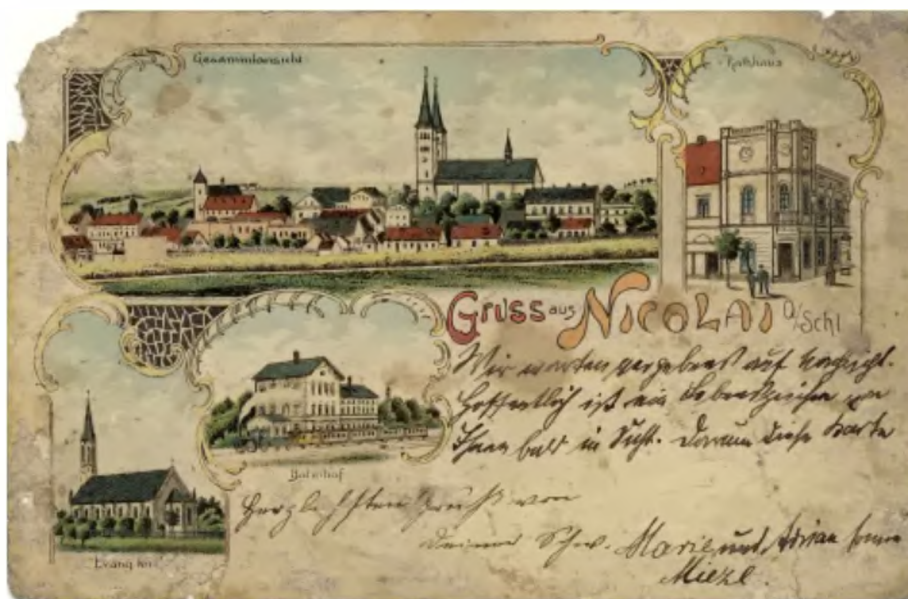 Gesammtansicht
Rathhaus
Gruss aus Nicolai O/Schl
Wir warten vergebens auf Nachricht.
Hoffentlich ist ein Lebenszeichen von
Ihnen bald in Sicht. Darum diese Karte
Bahnhof
Herzlichsten Gruß von
Evang.
Deiner Schw. Marie und
Miezl.